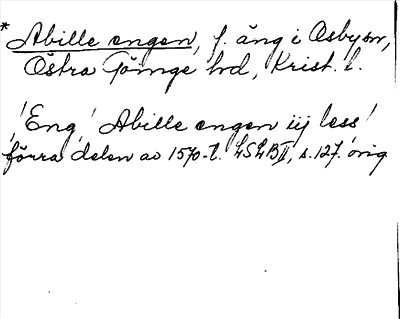 * Abille engen, f. äng i Osby sn,
Östra Göinge hd, Krist. l.
'Eng' Abille engen iij less'
förra delen av 1570-t. LSLB II, s. 127. orig.